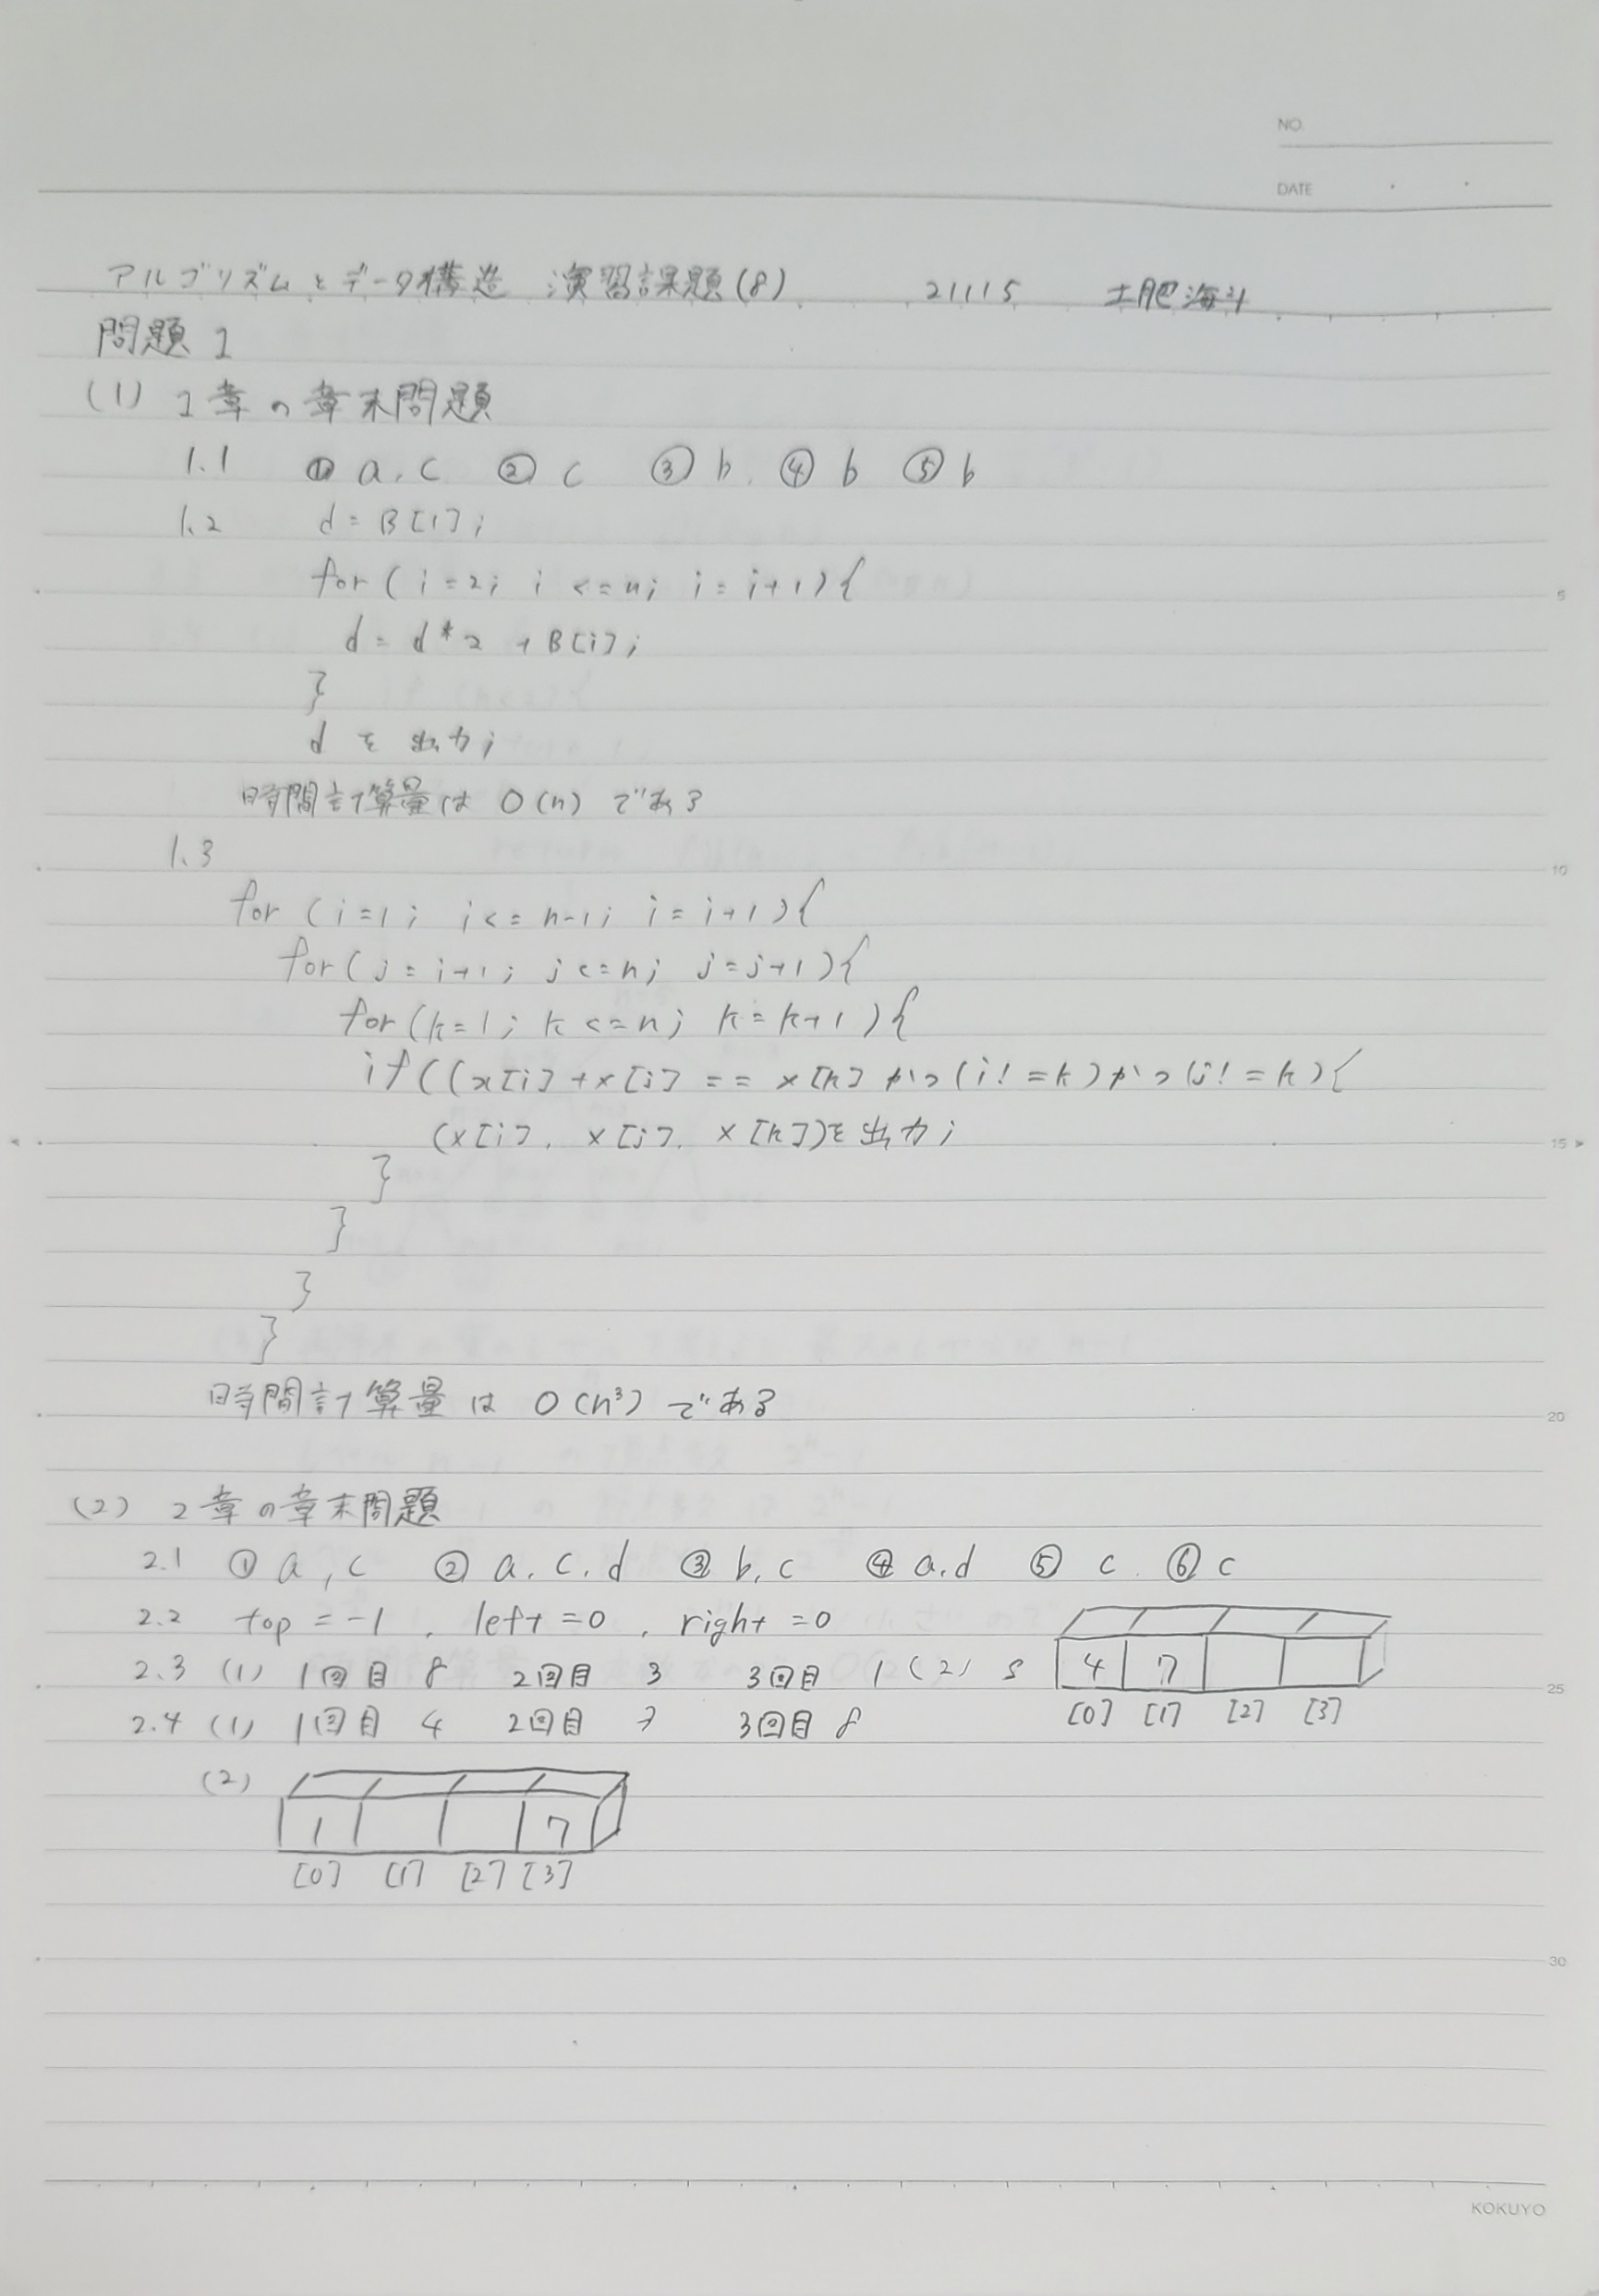 NO.
DATE
アルゴリズムとデータ構造 演習課題(8) 21115 土肥海斗
問題1
(1) 1章の章末問題
1.1 ① a, c ② c ③ b. ④ b ⑤ b
1.2 d = B[1];
for (i=2; i <=n; i = i+1){
d = d*2 + B[i];
}
dを出力;
時間計算量は O(n) である
1.3
for (i=1; i<= n-1; i = i+1){
for (j = i+1; j <=n; j=j+1){
for (k=1; k <=n; k=k+1){
if ((x[i] +x[j] == x[k] かつ (i! =k) かつ (j! =k){
(x[i], x[j], x[k])を出力;
}
}
}
}
時間計算量は O(n³) である
(2) 2章の章末問題
2.1 ① a, c ② a, c, d ③ b, c ④ a, d ⑤ c ⑥ c
2.2 top = -1, left =0, right =0
2.3 (1) 1回目 8 2回目 3 3回目 1 (2) 4 7
[0] [1] [2] [3]
2.4 (1) 1回目 4 2回目 3回目 8
(2) 1 7
[0] [1] [2] [3]
5
10
15
20
25
30
KOKUYO